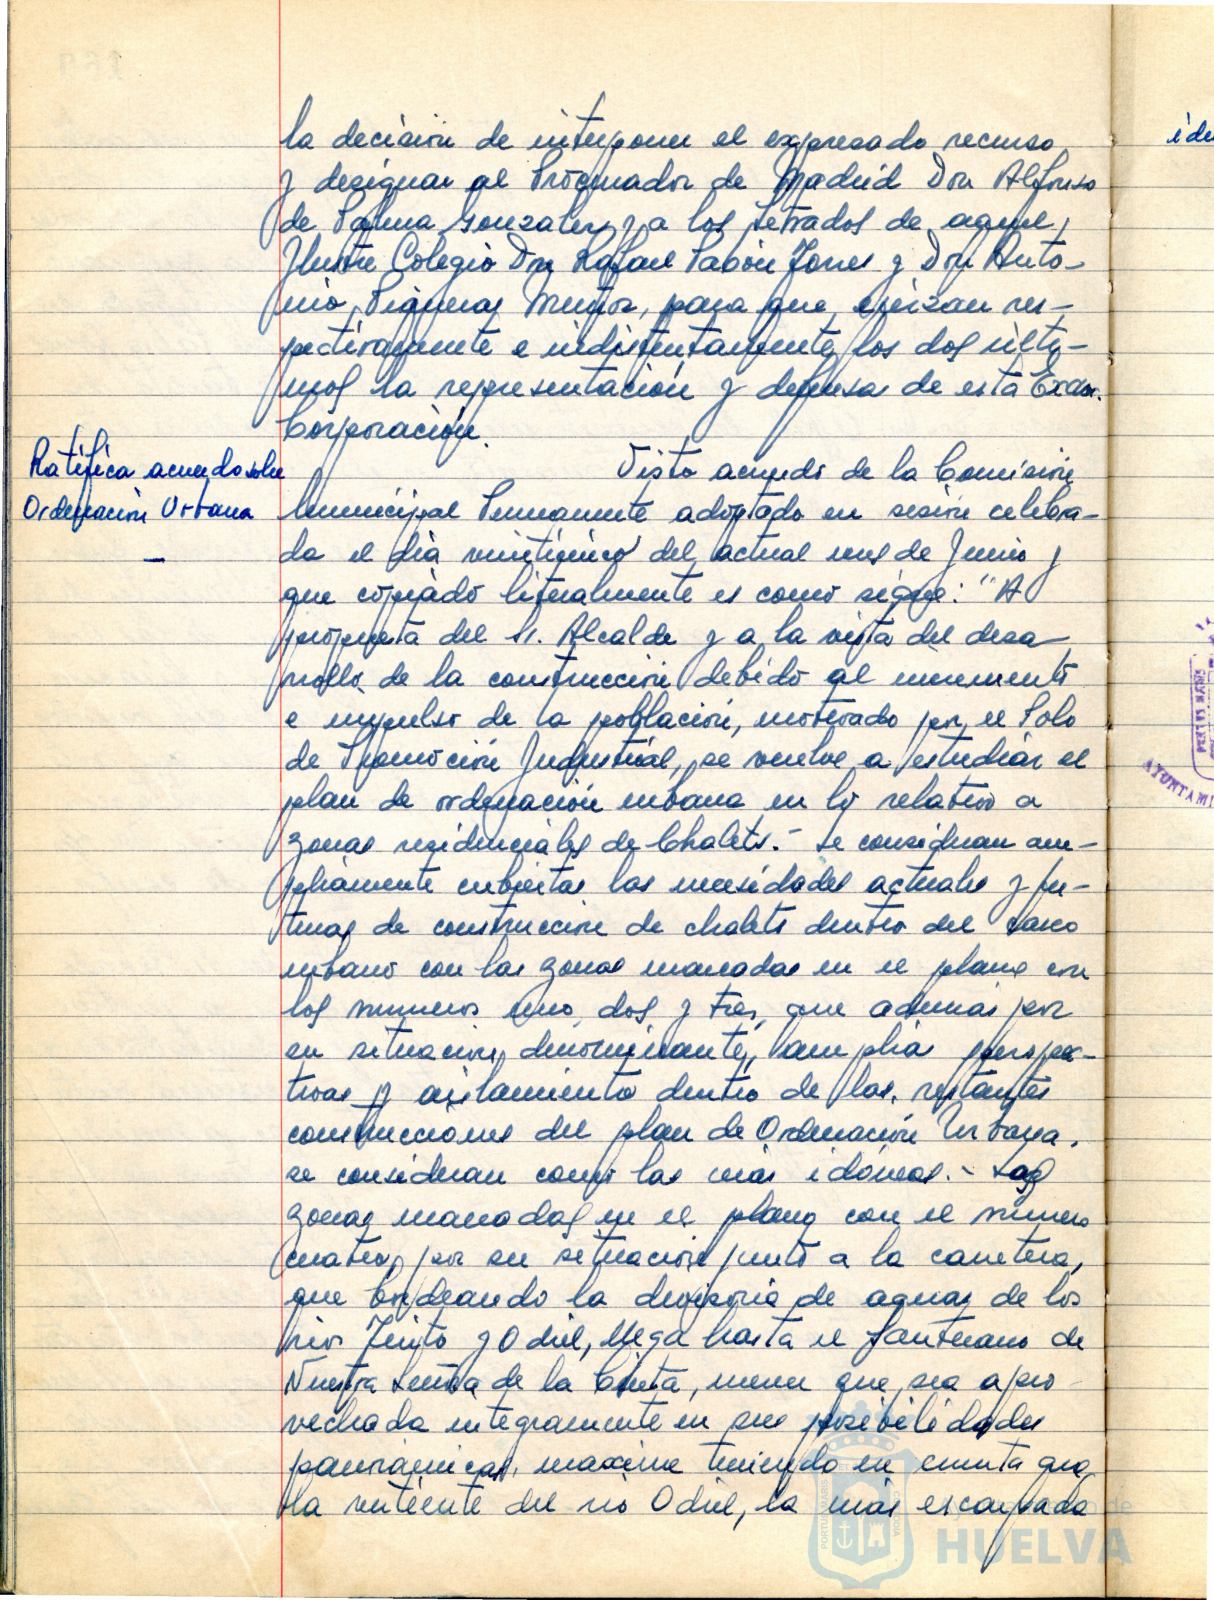 la decisión de interponer el expresado recurso
y designar al Procurador de Madrid Don Alfonso
de Palma González y a los Letrados de aquel
Ilustre Colegio Don Rafael Pabón Torres y Don Anto-
nio Piqueras Muñoz, para que ejerzan res-
pectivamente e indistintamente los dos últi-
mos la representación y defensa de esta Excma.
Corporación.
Ratifica acuerdo sobre
Ordenación Urbana
Visto acuerdo de la Comisión
Municipal Permanente adoptado en sesión celebra-
da el día veinticinco del actual mes de Junio y
que copiado literalmente es como sigue: "A
propuesta del Sr. Alcalde y a la vista del desa
rrollo de la construcción debido al incremento
e impulso de la población, motivado por el Polo
de Promoción Industrial, se vuelve a estudiar el
plan de ordenación urbana en lo relativo a
zonas residenciales de Chalets.- Se consideran am-
pliamente cubiertas las necesidades actuales y fu-
turas de construcción de chalets dentro del casco
urbano con las zonas marcadas en el plano con
los números uno, dos y tres, que además por
su situación, ampliá perspec-
tivas y aislamiento dentro de las restantes
construcciones del plan de Ordenación Urbana,
se consideran como las más idóneas.- Las
zonas marcadas en el plano con el número
cuatro, por su situación junto a la carretera,
que bordeando la divisoria de aguas de los
ríos Tinto y Odiel, llega hasta el Santuario de
Nuestra Señora de la Cinta, merece que sea apro
vechada integramente en sus posibilidades
panorámicas, máxime teniendo en cuenta que
la vertiente del río Odiel, es la más escarpada
ide
AYUNTAMI
Ayuntamiento de
HUELVA